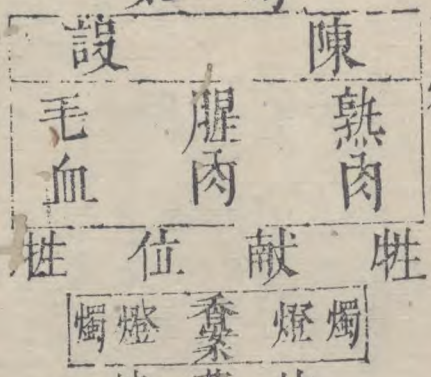 陳設
熟肉 腥肉 毛血
牲獻位牲
燭燈香案燈燭